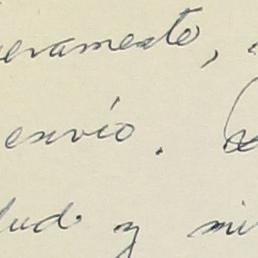 eramente,
envío.
lud y mi